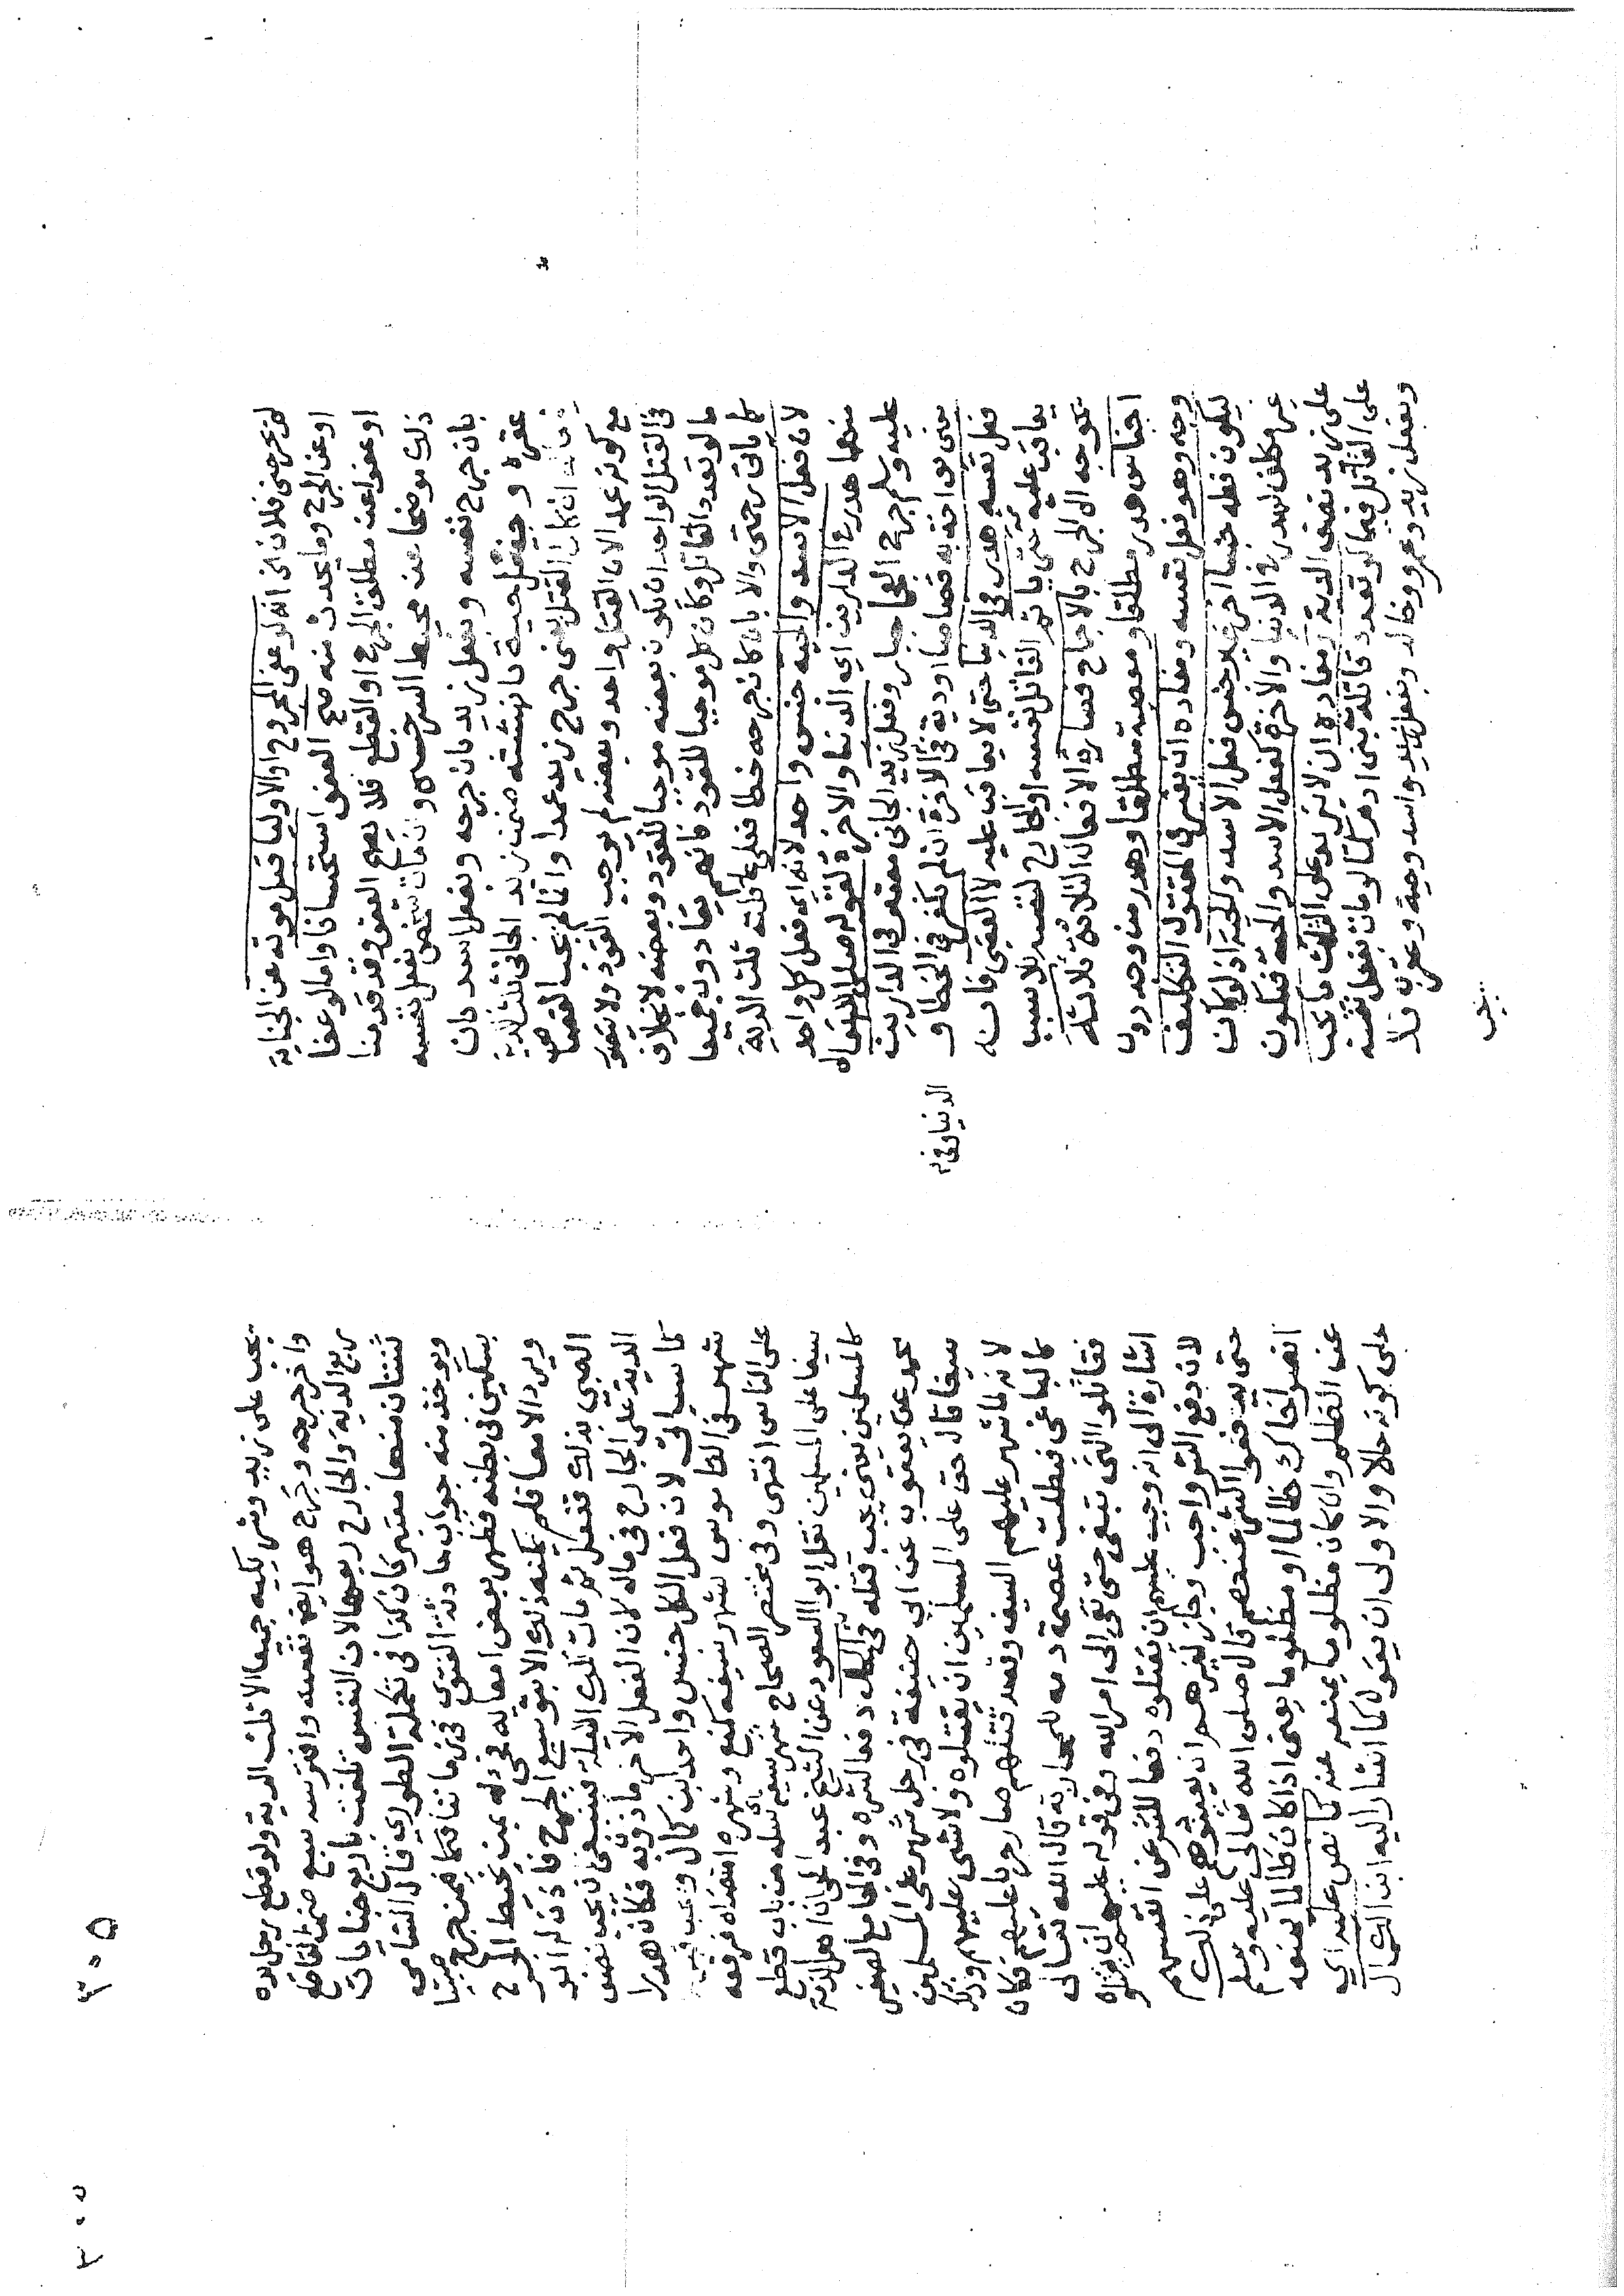 لم يجرحني فلان اي انه لو عفى المجروح او الاوليا قبل موته عن الجناية
او عن الجرح وما يحدث منه صح العفو استحسانا واما لو عفا
او عفوا عن مطلق الجرح او القطع فلا يصح العفو وقد قدمنا
ذلك موضحا عن محيط السرخسي وان مات شخص بفعل نفسه
بان جرح نفسه وبفعل زيد بان جرحه وبفعل اسد بان
عقره وبفعل حية بان نهشته ضمن زيد الجاني ثلث الدية
في ماله ان كان القتل يعني جرح زيد عمدا وانما لم يجب القصاص
مع كونه عمدا لان القتل واحد وبعضه لم يوجب القود ولا يتصور
في القتل الواحد ان يكون بعضه موجبا للقود وبعضه لا بخلاف
ما لو تعدد القاتل وكان كل موجبا للقود فانهم يقادون جميعا
كما ياتي رحمتي والا بان كان جرحه خطا فعلى عاقلته ثلث الدية
لان فعل الاسد والحية جنس واحد لانه اي فعل كل واحد
منهما هدر في الدارين اي الدنيا والاخرة لقوله صلى الله
عليه وسلم جرح العجما جبار وفعل زيد الجاني معتبر في الدارين
يعني يواخذ به قصاصا او دية في الاخرة ان لم يكفر في الخطا و
الدنيا وفي
فعل نفسه هدر في الدنيا حتى لا يعاقب عليه لا العقبى فانه
يعاقب عليه حتى ياثم القاتل نفسه او الجارح لنفسه بلا سبب
يحوجه الى الجرح بالاجماع فصارت الافعال الثلاثة ثلاثة
اجناس هدر مطلقا ومعصية مطلقا وهدر من وجه دون
وجه وهو فعل نفسه ومفاده ان يعتبر في المقتول التكليف
ليكون فعله جنسا اخر غير جنس فعل الاسد والحية اذ لو كان
غير مكلف لهدر في الدنيا والاخرة كفعل الاسد والحية فيكون
على زيد نصف الدية ومفاده ان لا يزيد على الثلث ما يجب
على القاتل فيما لو تعدد قاتله بني ادم كما لو مات بفعل نفسه
وبفعل زيد وعمرو وخالد وبفعل اسد وحية وعقرب فلا
يجب
يجب على زيد وشريكيه جميعا الا ثلث الدية ولو قطع رجل يده
واخر جرحه وجرح هو ايضا نفسه وافترسه سبع ضمن القاطع
ربع الدية والجارح ربعها لان النفس تلفت باربع جنايات
ثنتان منها معتبرتان كذا في تكملة الطوري قال الشامي
ويوخذ منه جواب حادثة الفتوى في زماننا فيمن جرح صبيا
بسكين في بطنه فظهر بعض امعائه فجي له بمن يخيط الجرح
ويرد الامعا فلم يمكنه ذلك الا بتوسيع الجرح فاذن له ابو
الصبي بذلك ففعل ثم مات تلك الليلة فينبغي ان يجب نصف
الدية على الجارح في ماله لان الفعل الاخر ماذون به فكان هدرا
كما سياتي لان فعل الكل جنس واحد ابن كمال ويجب قتل من
شهر في القاموس شهر سيفه كمنع وشهره انتضاه فرفعه
على الناس انتهى وفي مختصر الصحاح شهر سيفه سله من باب قطع
سيفا على المسلمين نقل ابو السعود عن الشيخ عبد الحي ان اهل الذمة
كالمسلمين يعني يجب قتله في الحال دفعا لشره وفي الجامع الصغير
محمد عن يعقوب عن ابي حنيفة في رجل شهر على المسلمين
سيفا قال حق على المسلمين ان يقتلوه ولا شي عليهم وذلك
لانه لما شهر عليهم السيف وقصد قتلهم صار حربا عليهم فكان
كالباغي فبطلت عصمة دمه للمحاربة قال الله تعالى
فقاتلوا التي تبغي حتى تفي الى امر الله وفي قوله عليهم ان يقتلوه
اشارة الى انه وجب عليهم ان يقتلوه دفعا للشر عن انفسهم
لان دفع الشر واجب وجاز لغيرهم ان يعينوهم على ذلك
حتى يدفعوا الشر عنهم قال صلى الله تعالى عليه وسلم
انصر اخاك ظالما او مظلوما يعني اذا كان ظالما يمنعه
عن الظلم وان كان مظلوما يمنع عنه كما نص عليه اي
على كونه حالا والاولى ان يقول كما اشار اليه ابن الكمال
٣٠٥
٣٠٥